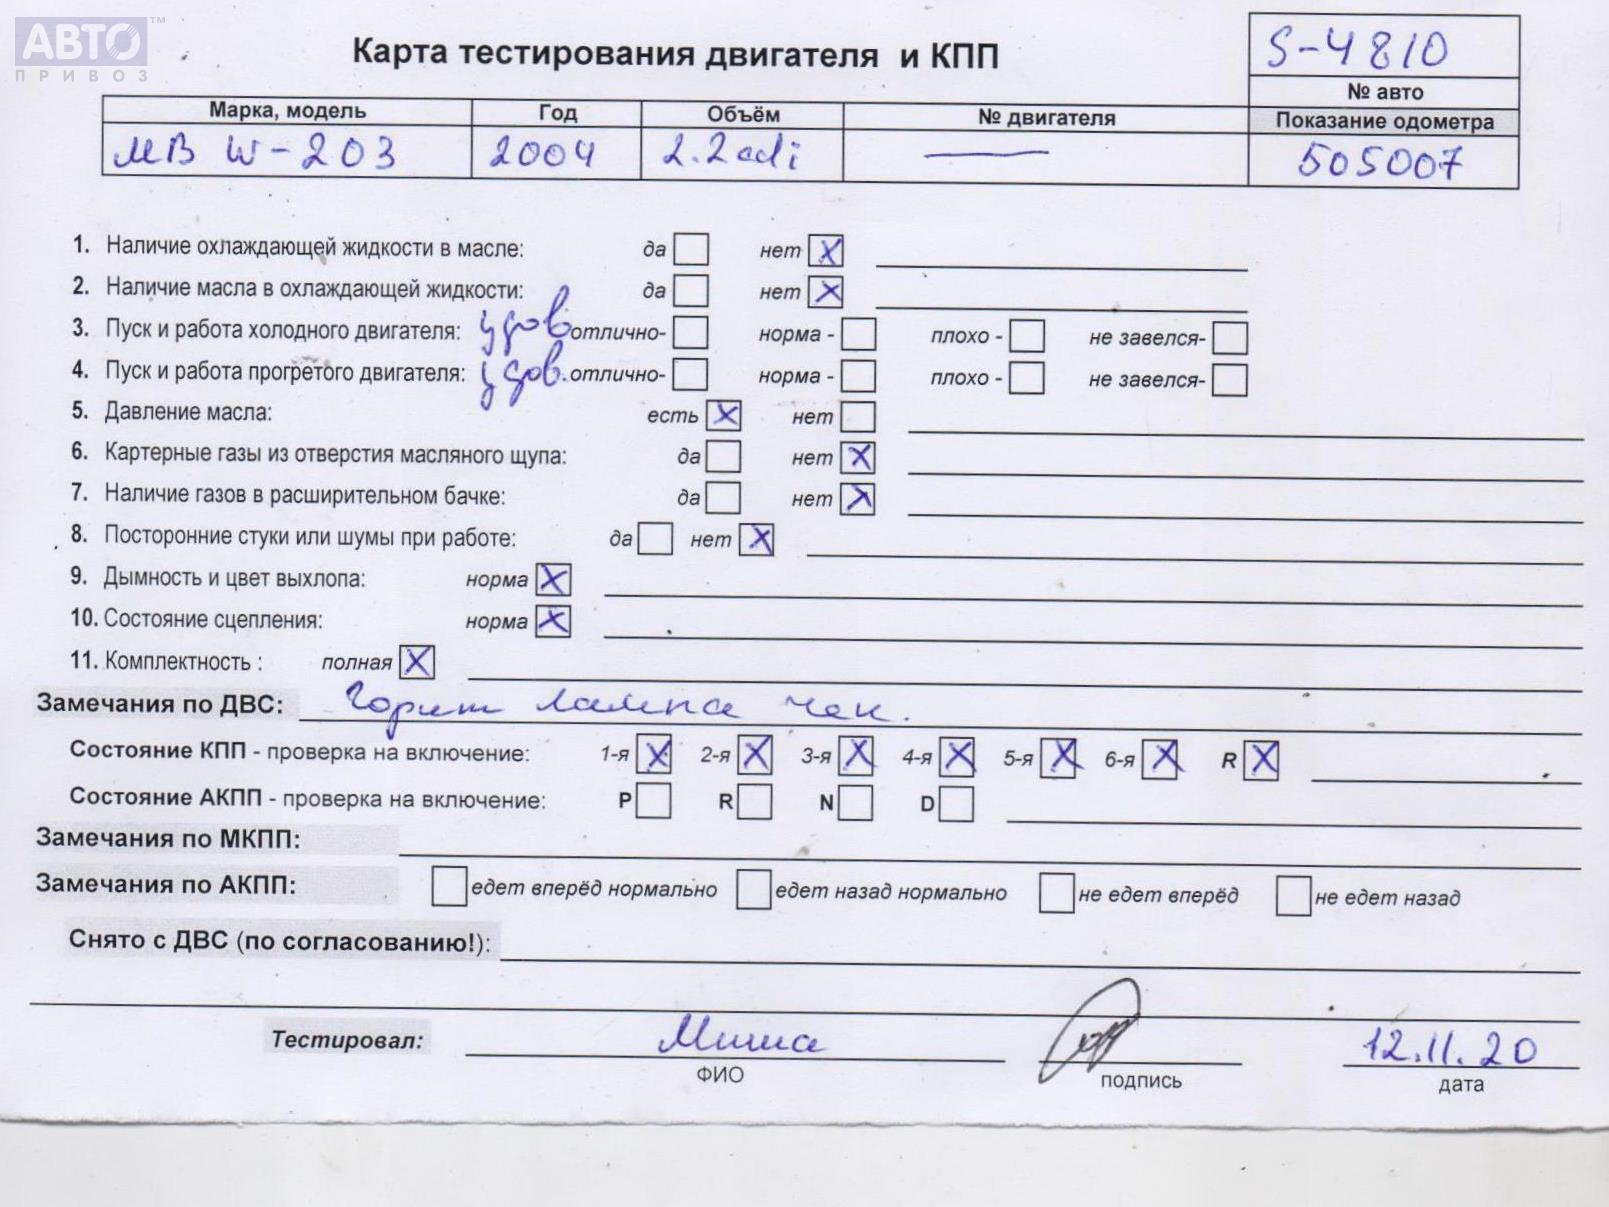 АВТО ™
ПРИВОЗ
Карта тестирования двигателя и КПП
S-4810
№ авто
Марка, модель Год Объём № двигателя Показание одометра
МВ W-203 2004 2.2 cdi — 505007
1. Наличие охлаждающей жидкости в масле: да нет X
2. Наличие масла в охлаждающей жидкости: да нет X
3. Пуск и работа холодного двигателя: удов. отлично- норма - плохо - не завелся-
4. Пуск и работа прогретого двигателя: удов. отлично- норма - плохо - не завелся-
5. Давление масла: есть X нет
6. Картерные газы из отверстия масляного щупа: да нет X
7. Наличие газов в расширительном бачке: да нет X
8. Посторонние стуки или шумы при работе: да нет X
9. Дымность и цвет выхлопа: норма X
10. Состояние сцепления: норма X
11. Комплектность : полная X
Замечания по ДВС: Горит лампа чек.
Состояние КПП - проверка на включение: 1-я X 2-я X 3-я X 4-я X 5-я X 6-я X R X
Состояние АКПП - проверка на включение: P R N D
Замечания по МКПП:
Замечания по АКПП: едет вперёд нормально едет назад нормально не едет вперёд не едет назад
Снято с ДВС (по согласованию!):
Тестировал: Миша 12.11.20
ФИО подпись дата